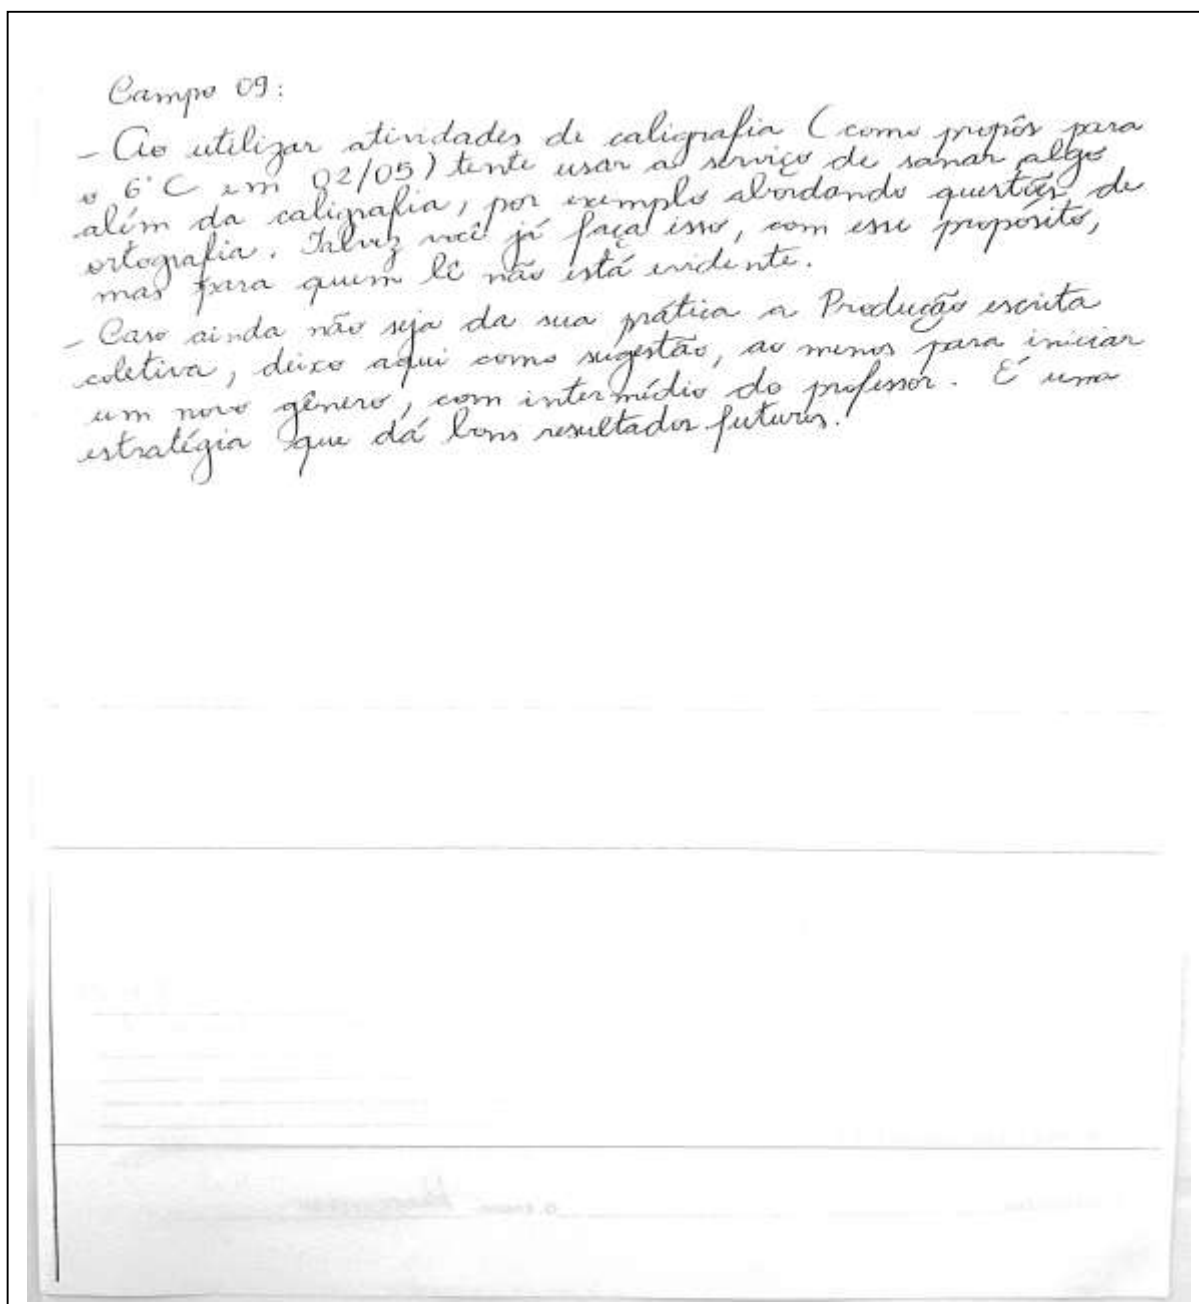 Campo 09:
- Ao utilizar atividades de caligrafia (como propôs para
o 6º C em 02/05) tente usar a serviço de sanar algo
além da caligrafia, por exemplo abordando questões de
ortografia. Talvez você já faça isso, com esse propósito,
mas para quem lê não está evidente.
- Caso ainda não seja da sua prática a Produção escrita
coletiva, deixo aqui como sugestão, ao menos para iniciar
um novo gênero, com intermédio do professor. É uma
estratégia que dá bons resultados futuros.